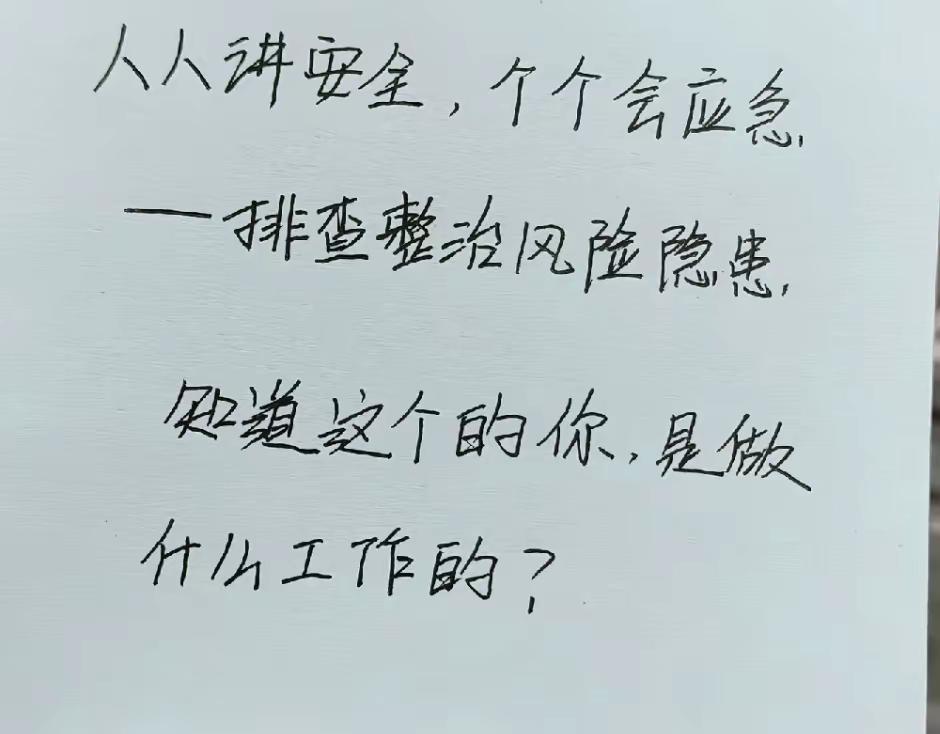 人人讲安全,个个会应急
—排查整治风险隐患
知道这个的你,是做
什么工作的?